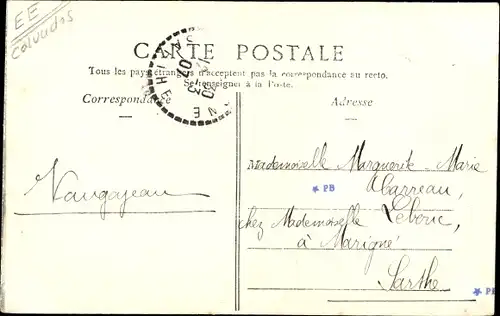 EE
Calvados
CARTE POSTALE
Tous les pays étrangers n'acceptent pas la correspondance au recto.
Se renseigner à la Poste.
Correspondance
Adresse
Mademoiselle Marguerite-Marie
* PB
chez Mademoiselle Lebouc,
à Marigné
Sarthe